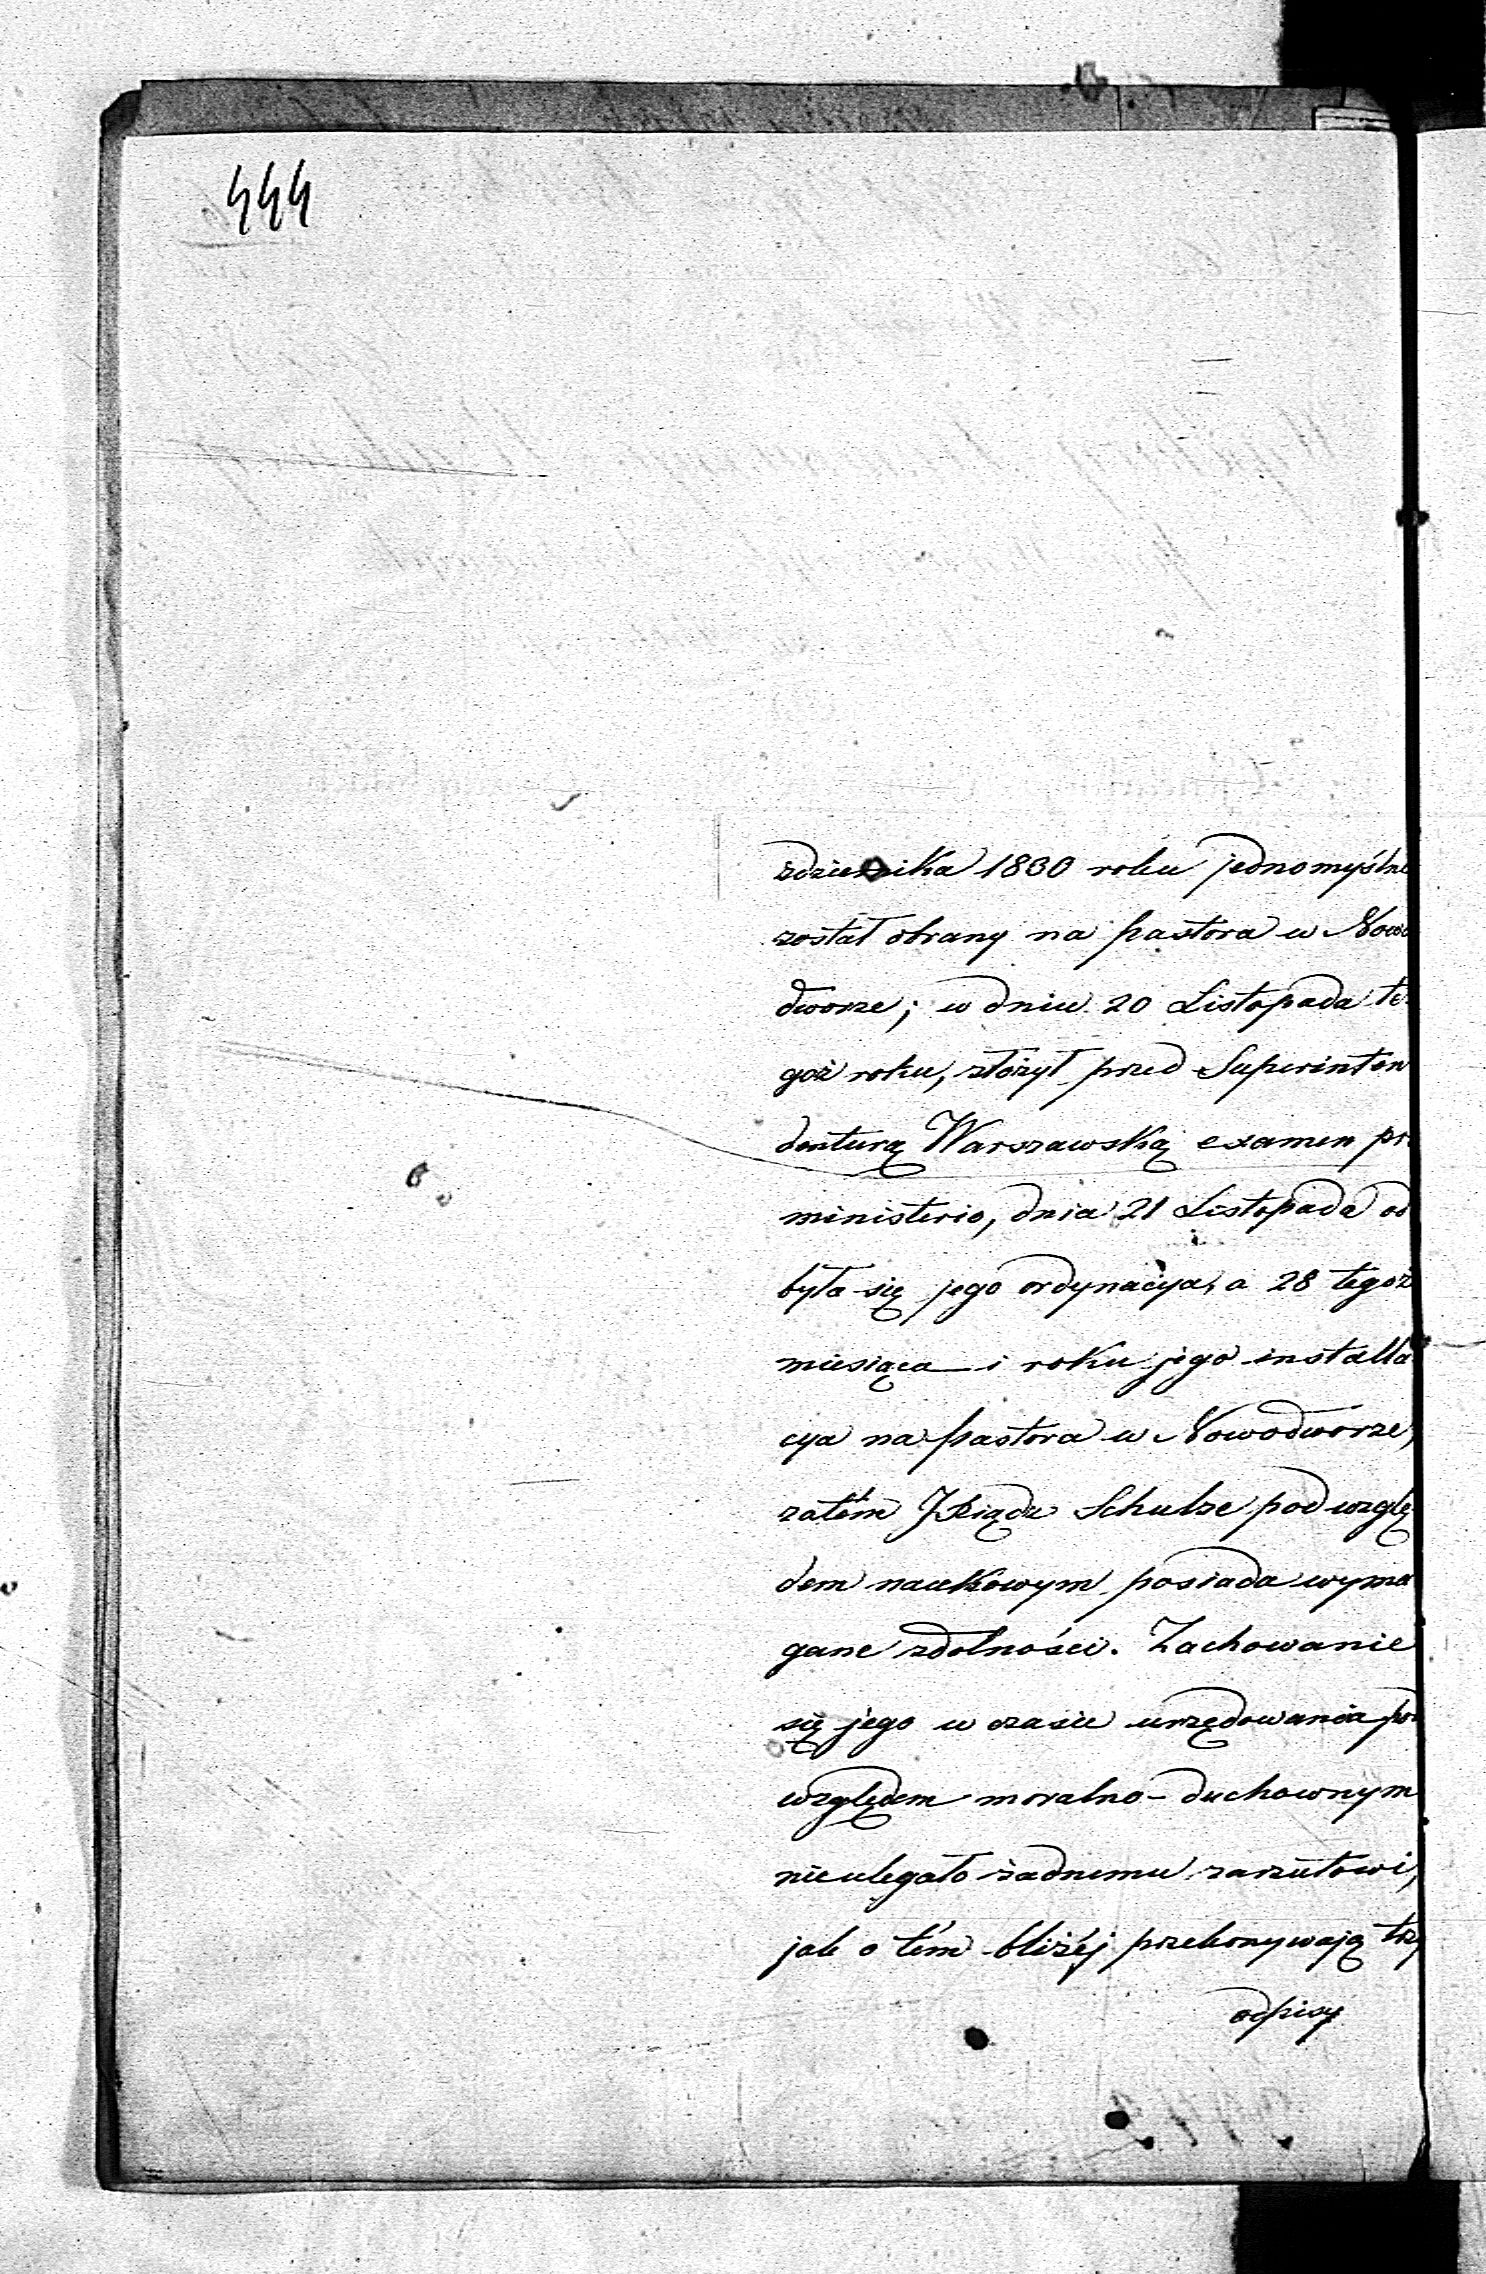 444
ździernika 1830 roku jednomyślne
został obrany na pastora w Nowo
dworze; w dniu 20 Listopada te-
goż roku, złożył przed Superinten
denturą Warszawską examen pro
ministerio, dnia 21 Listopada od
była się jego ordynacya, a 28 tegoż
miesiąca i roku jego installa
cya na pastora w Nowodworze,
zatém JKsiądz Schulze pod wzglę
dem naukowym posiada wyma
gane zdolności. Zachowanie
się jego w czasie urzędowania pod
względem moralno-duchownym
nie ulegało żadnemu zarzutowi,
jak o tém bliżéj przekonywają trzy
odpisy